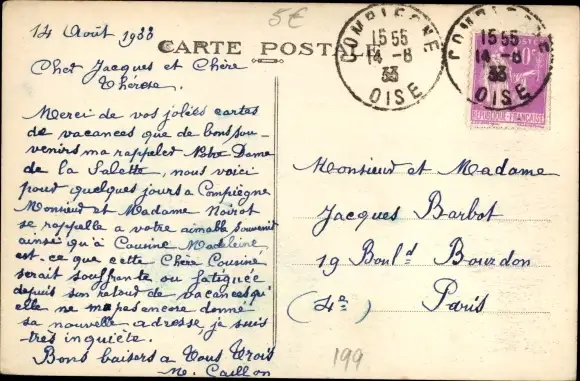 5€
14 Août 1933
CARTE POSTALE
Cher Jacques et Chère
Thérèse.
Merci de vos jolies cartes
de vacances que de bons sou-
venirs m'a rappeler Notre Dame
de la Salette, nous voici
pour quelques jours a Compiègne
Monsieur et Madame Noirot
se rappelle a votre aimable souvenir
ainsi qu'à Cousine Madeleine,
est-ce que cette Chère Cousine
serait souffrante ou fatiguée
depuis son retour de vacances qu'
elle ne m'a pas encore donné
sa nouvelle adresse je suis
très inquiète.
Bons baisers a Vous Trois
M. Caillon
COMPIEGNE
15 55
14 - 8
33
OISE
COMPIEGNE
15 55
14 - 8
33
OISE
POSTES
REPUBLIQUE-FRANÇAISE
Monsieur et Madame
Jacques Barbot
19 Boul.d Bourdon
(4e) Paris
199